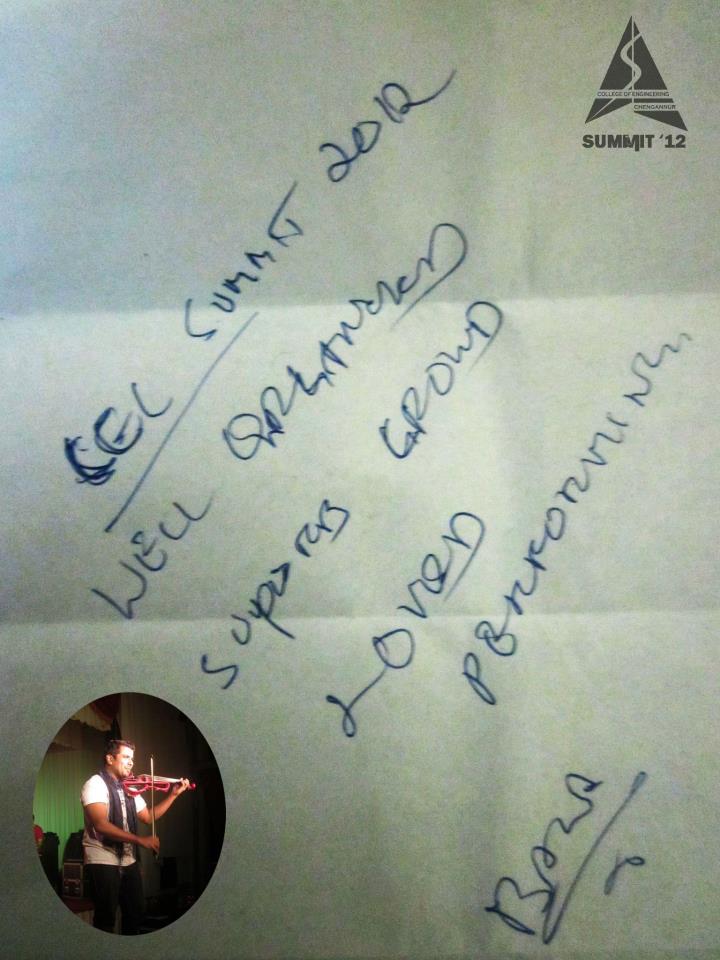 COLLEGE OF ENGINEERING
CHENGANNUR
SUMMIT '12
CEC SUMMIT 2012
WELL ORGANISED
SUPERB CROWD
LOVED
PERFORMING